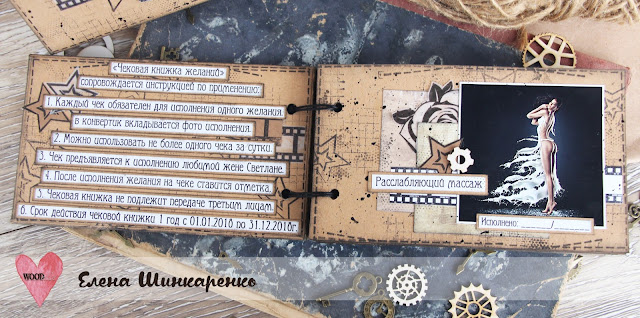 «Чековая книжка желаний»
сопровождается инструкцией по применению:
1. Каждый чек обязателен для исполнения одного желания.
в конвертик вкладывается фото исполнения.
2. Можно использовать не более одного чека за сутки.
3. Чек предъявляется к исполнению любимой жене Светлане.
4. После исполнения желания на чеке ставится отметка.
5. Чековая книжка не подлежит передаче третьим лицам.
6. Срок действия чековой книжки 1 год с 01.01.2018 по 31.12.2018г.
Расслабляющий массаж
Исполнено: ________/________
WOOD
Елена Шинкаренко